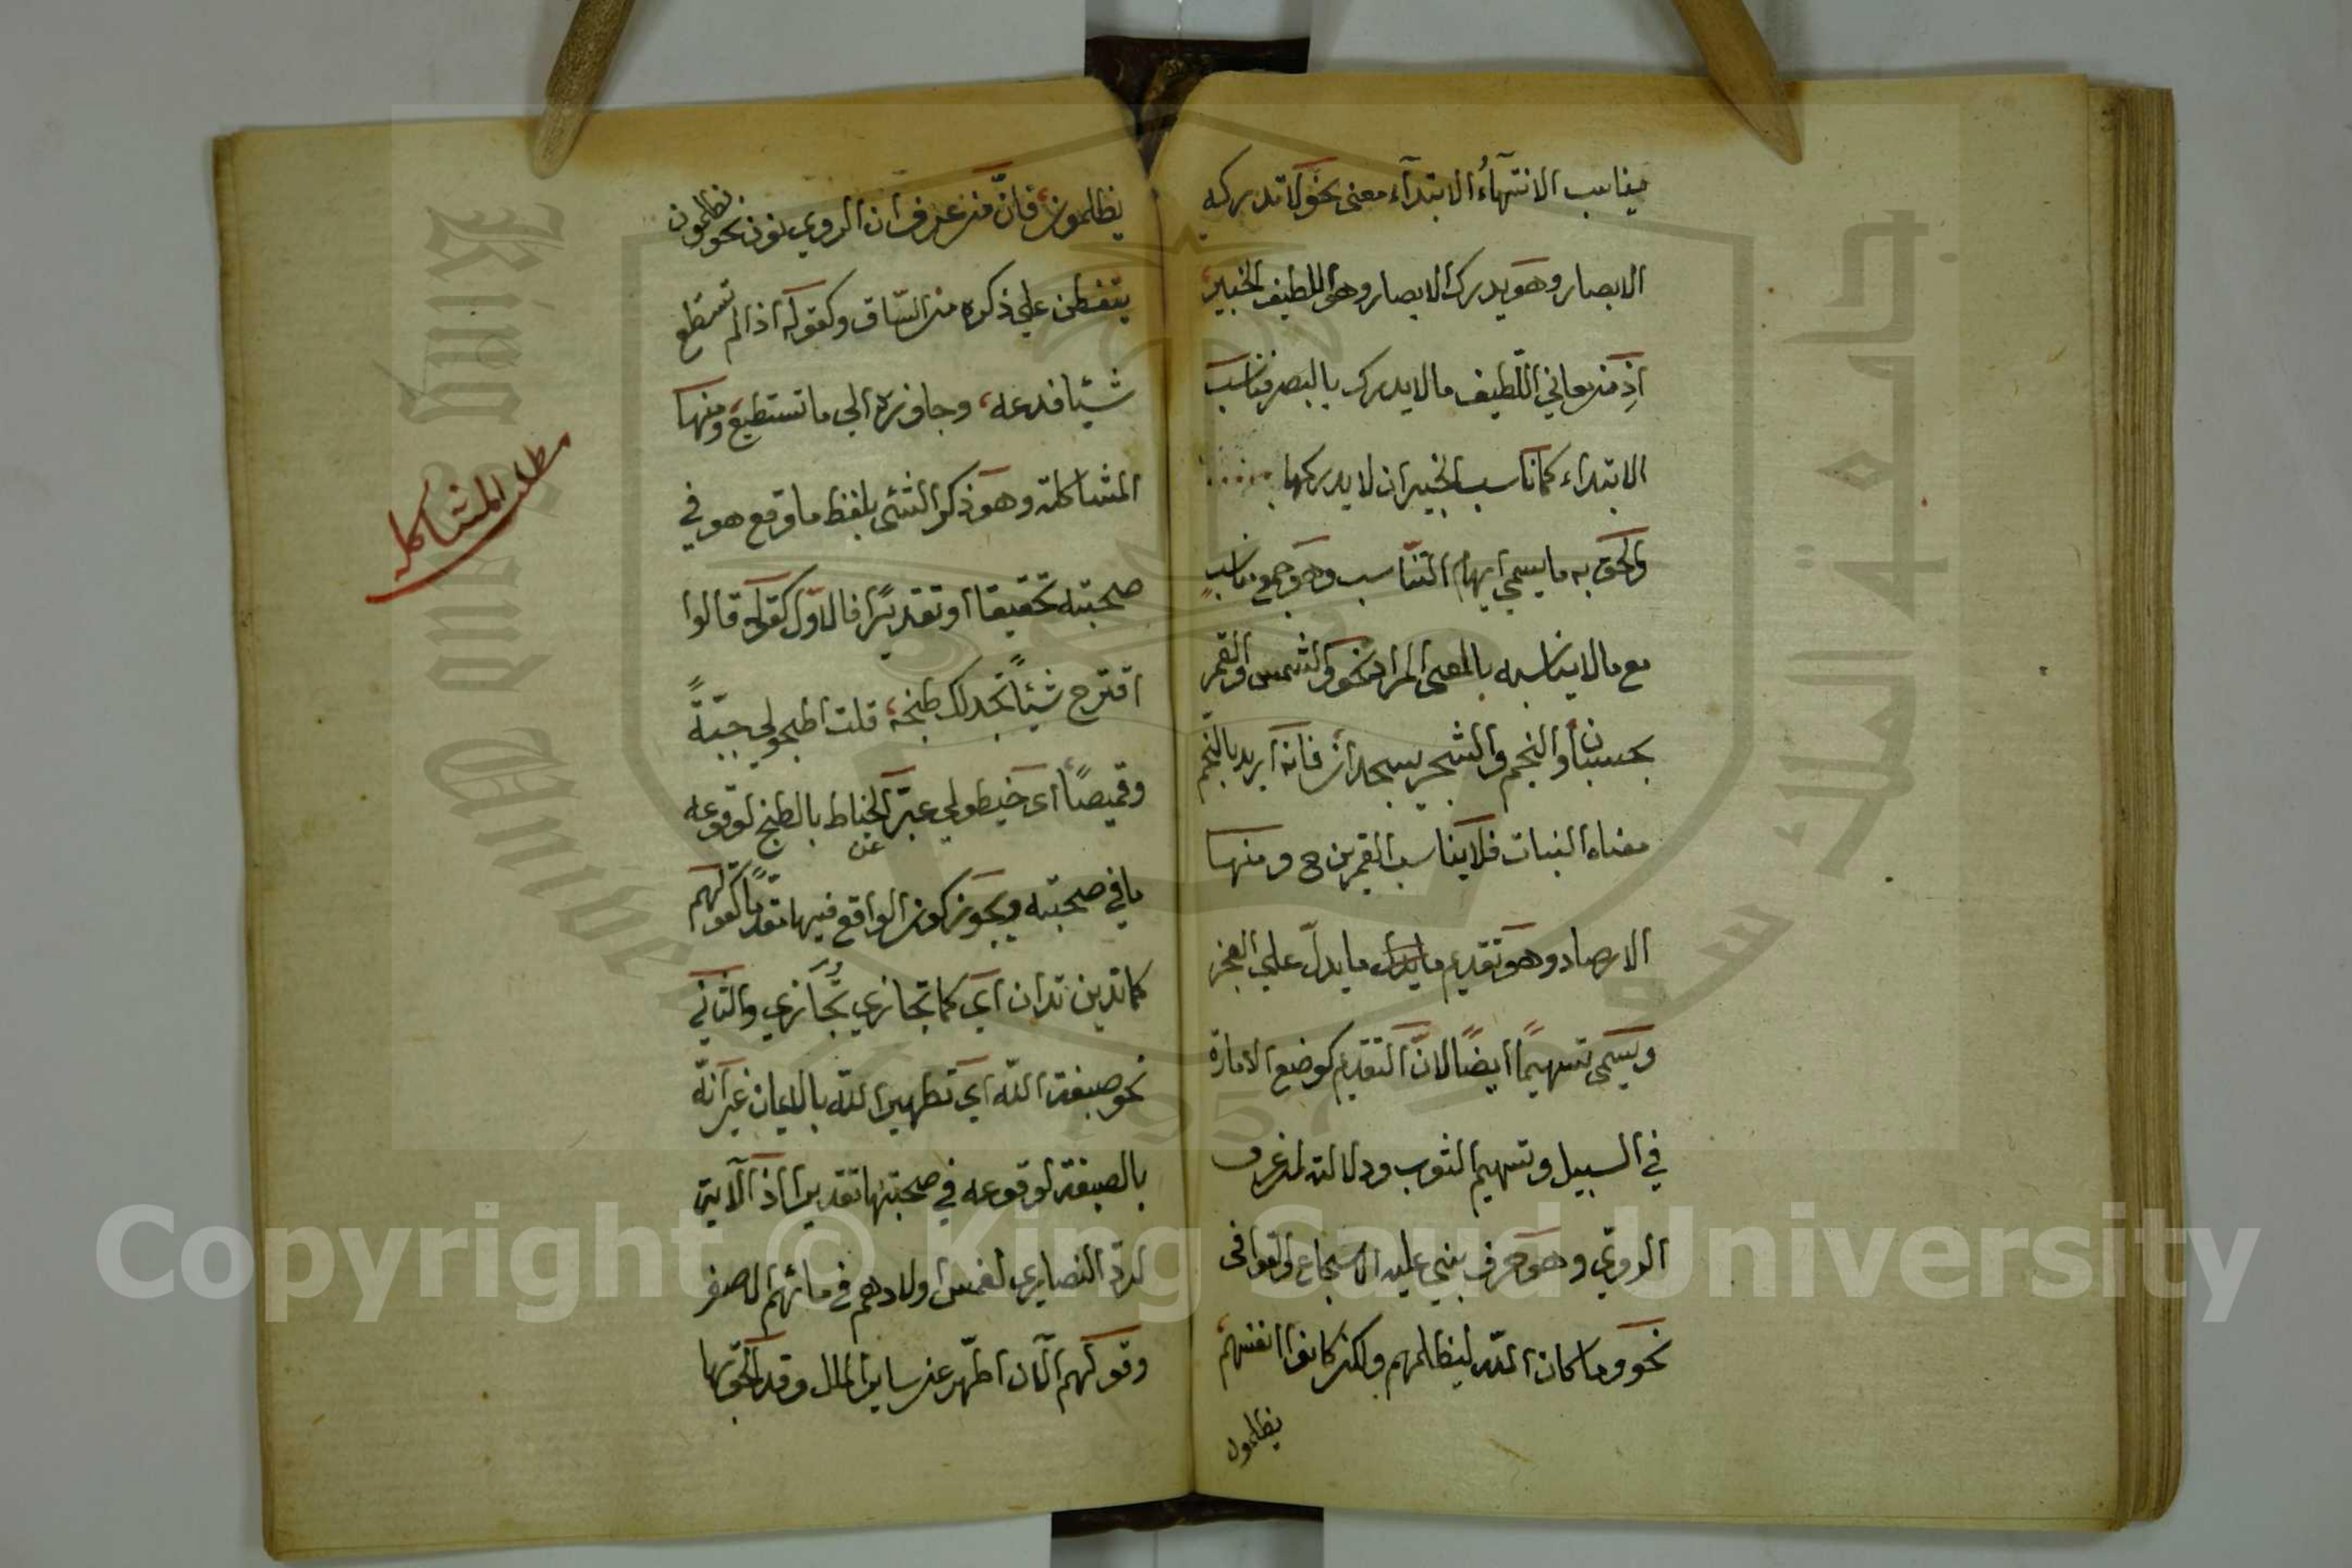 يناسب الانتهآءُ الابتدآء معنى نحو لا تدركه
الابصار وهو يدرك الابصار وهو اللطيف الخبير
اذ من معاني اللّطيف ما لا يدرك بالبصر فناسب
الابتداء كما ناسب الخبير ان لا يدركها
والحق به ما يسمى ايهام التناسب وهو جمع مناسب
مع ما لا يناسبه بالمعنى المراد نحو والشمس والقمر
بحسبان والنجم والشجر يسجدان فانه اريد بالنجم
معناه النبات فلا يناسب القمرين ح ومنها
الارصاد وهو تقديم ما يدل ما يدلّ علي العجز
ويسمى تسهيمًا ايضًا لانّ التقديم كوضع الامارة
في السبيل وتسهيم الثوب ودلالته لمن عرف
الروي وهو حرف بني عليه الاسجاع والقوافى
نحو وما كان اللّه ليظلمهم ولكن كانوا انفسهم
يظلمون
يظلمون فانّ من عرف ان الروي نون نحو يظلمون
يتفطن علي ذكره من السّاق وكقوله اذا لم تستطع
شيئا فدعه وجاوزه الي ما تستطيع ومنها
المشاكلة وهو ذكر الشئ بلفظ ما وقع هو في
صحبته تحقيقا او تقديرًا فالاوّل كقوله قالوا
اقترح شيئًا نجد لك طبخه قلت اطبخولي جبّةً
وقميصًا اى خيطولي عبّر عن الخياط بالطبخ لوقوعه
ما في صحبته ويجوز كون الواقع فيها متقدمًا كقولهم
كما تدين تدان اي كما تجازي تُجَازي والثاني
نحو صبغة اللّه اى تطهير اللّه بالايمان غير انّه
بالصبغة لوقوعه في صحبتها تقديرا اذ الآية
لردّ النصاري لغمس اولادهم في مائهم الاصفر
وقولهم الآن اطّهر عن ساير الملل وقد الحق بها
مطلب المشاكله
Copyright © King Saud University
King Saud University
جامعة الملك سعود
1957